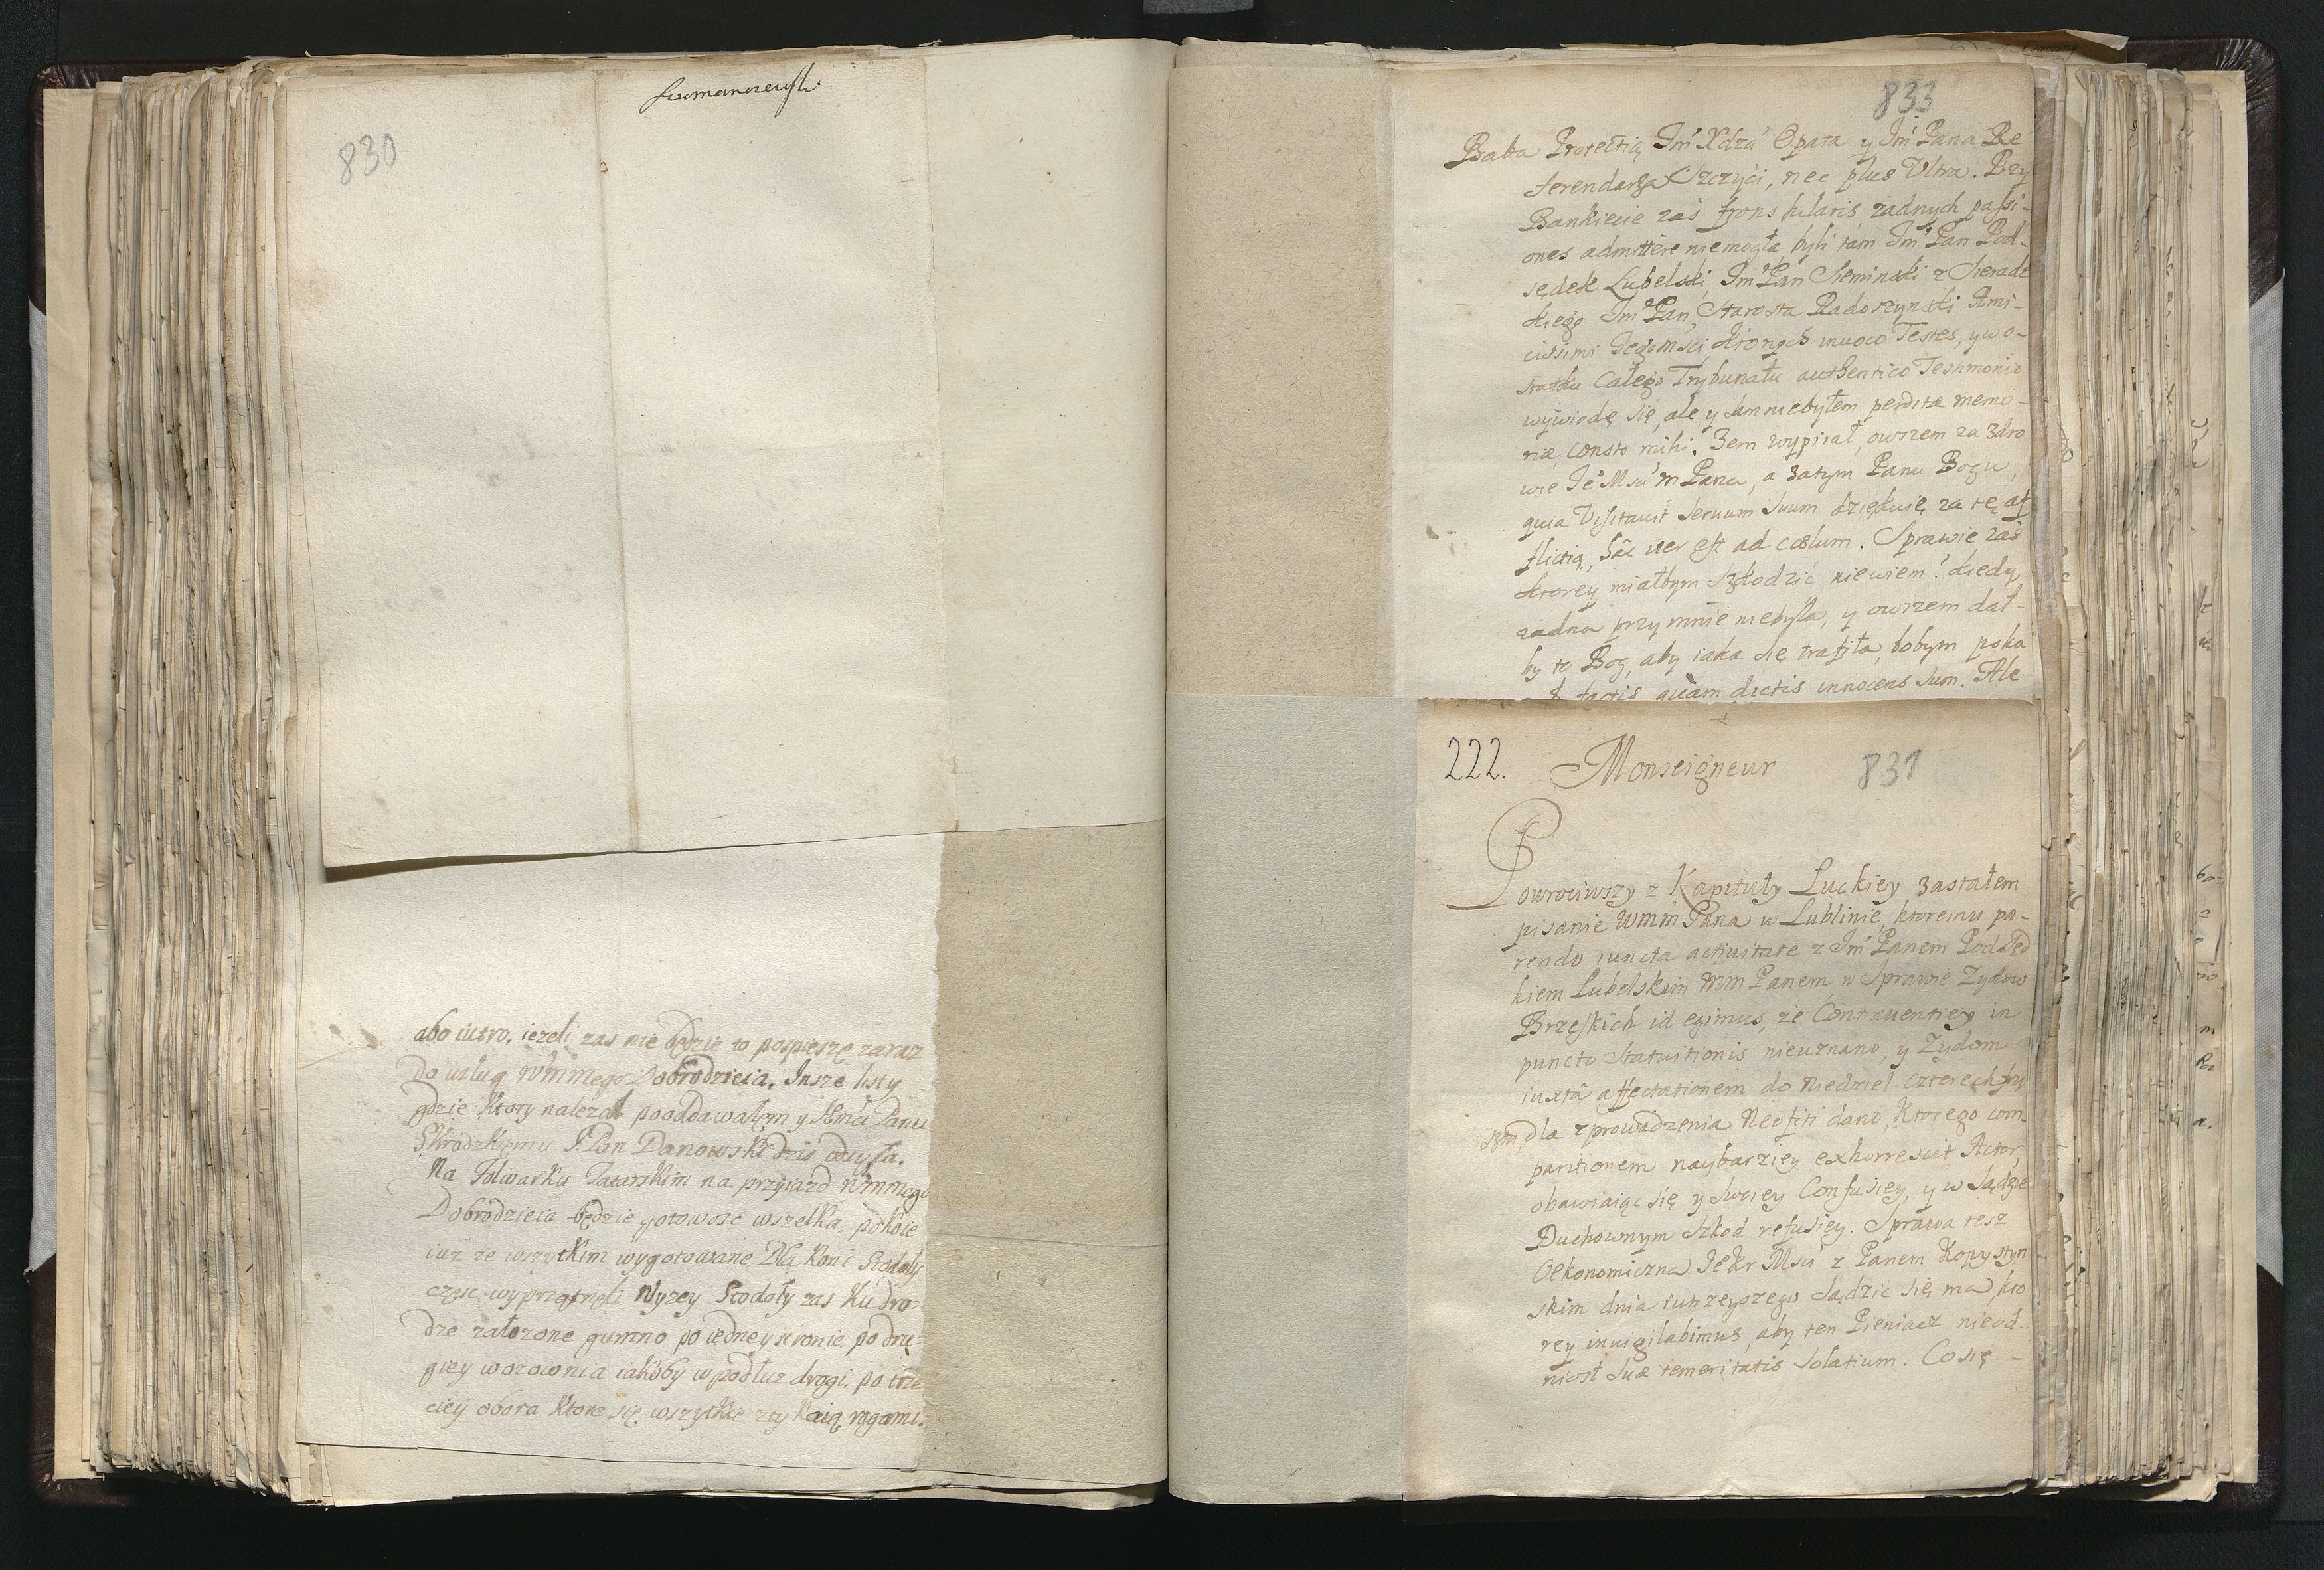 830
abo iutro, iezeli zas nie będzie to pospieszę zaraz
Do usług Wmmego Dobrodzieia. Insze listy
gdzie Ktory nalezał pooddawałem y JEmci Panu
P. Pan Danowski dzis odsyła.
Na Folwarku Tatarskim na przyiazd Wmmego
Dobrodzieia będzie gotowosc wszelka, pokoie
iuz ze wszytkim wygotowane Dla Koni Stodoły
częsc wyprzątnęli Wyzey Stodoły zas Ku dro-
dze załozone gumno po iedney stronie, po dru-
giey wozownia iakoby wpodłuz drogi, po trze
ciey obora Ktore się wszytkie ztykaią rogami.
833
Baba Protectią Jm Xdza Opata y Jm Pana Re
ferendarza Szczyci, nec plus Ultra. Przy
Bankiecie zaś frons hilaris zadnych passi-
ones admittere niemogła, byli tám Jm Pan Pod-
sędek Lubelski, Jm Pan Sieminski z Sieradz
kiego Jm Pan Starosta Radoszynski Ami-
cissimi Jegomsci, ktorych invoco Testes, y wo-
statku Całego Trybunału authentico Testimonio
wywiodę się, ale y sam niebyłem perditæ memo-
riæ, consto mihi. Zem wypisał, owszem za zdro
wie Je Mści m Pana, a zatym Panu Bogu,
quia Visitavit Servum Suum dziękuię za tę af
flictią, hâc iter est ad cœlum. Sprawie zaś
ktorey miałbym szkodzić niewiem? kiedy
zadna przy mnie niebyła, y owszem dał-
by to Bog, aby iaka się trafiła, bobym poka
factis quàm dictis innocens sum. Ale
222. Monseigneur 831
Powrociwszy z Kapituły Luckiey zastałem
pisanie WMM Pana w Lublinie, ktoremu pa-
rendo iuncta activitate z Jm Panem Podsęd
kiem Lubelskim MM Panem, w Sprawie Zydow
Brzeskich id egimus, ze Contraventiey in
puncto Statuitionis nieuznano, y Zydom
iuxtà affectationem do Niedziel czterech
dla zprowadzenia Neofiti dano, Ktorego com-
paritionem naybarziey exhorrescit Actor,
obawiaiąc się y swoiey Confusiey, y w Sądzie
Duchownym szkod refusiey. Sprawa tesz
Oekonomiczna Je Kr Mści z Panem Kopystyn
skim dnia iutrzeyszego Sądzic się ma, kto
rey invigilabimus, aby ten Pieniacz nieod-
niosł Suæ temeritatis Solatium. Co się